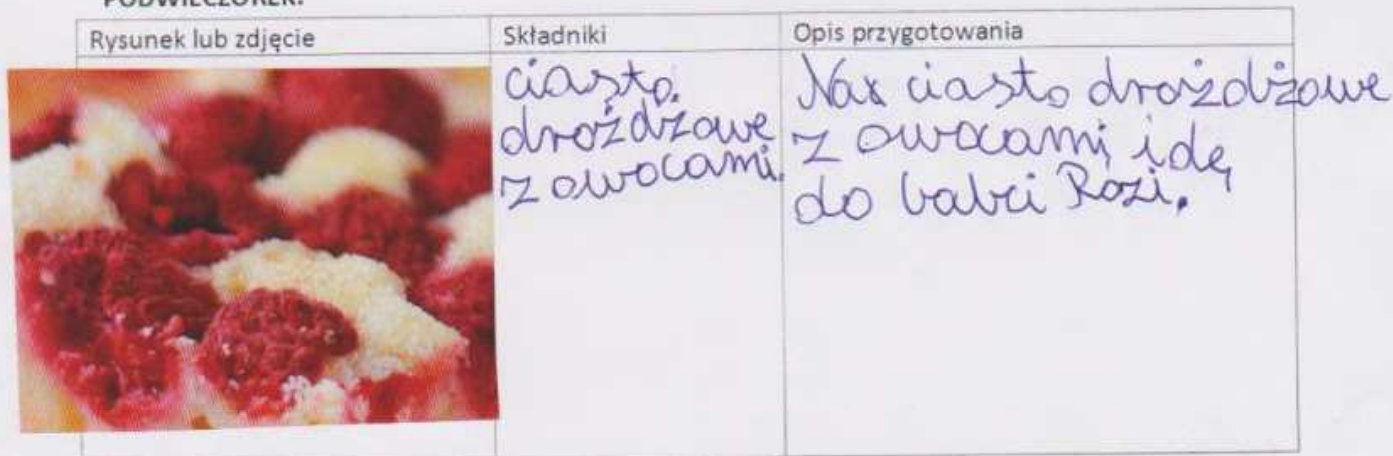 PODWIECZOREK:
Rysunek lub zdjęcie
Składniki
Opis przygotowania
ciasto.
drożdżowe
z owocami.
Nax ciasto drożdżowe
z owocami idę
do babci Rozi.